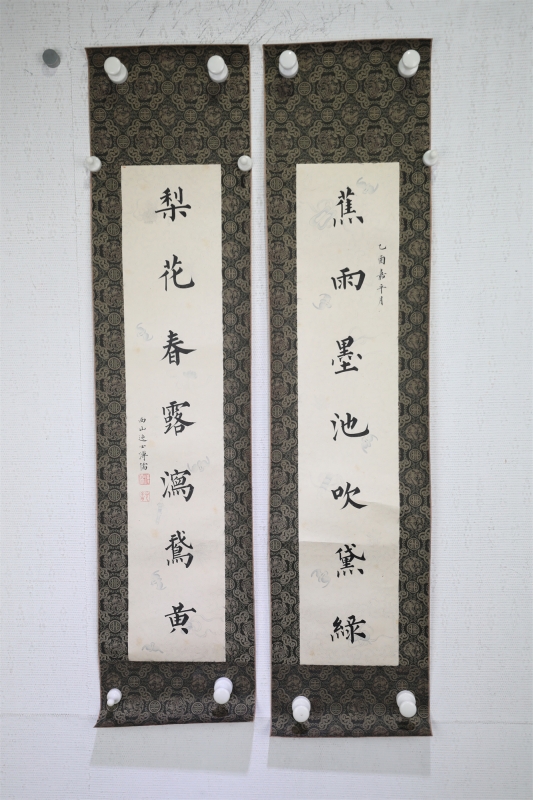 蕉雨墨池吹黛綠
乙酉嘉平月
梨花春露瀉鵞黃
西山逸士溥儒